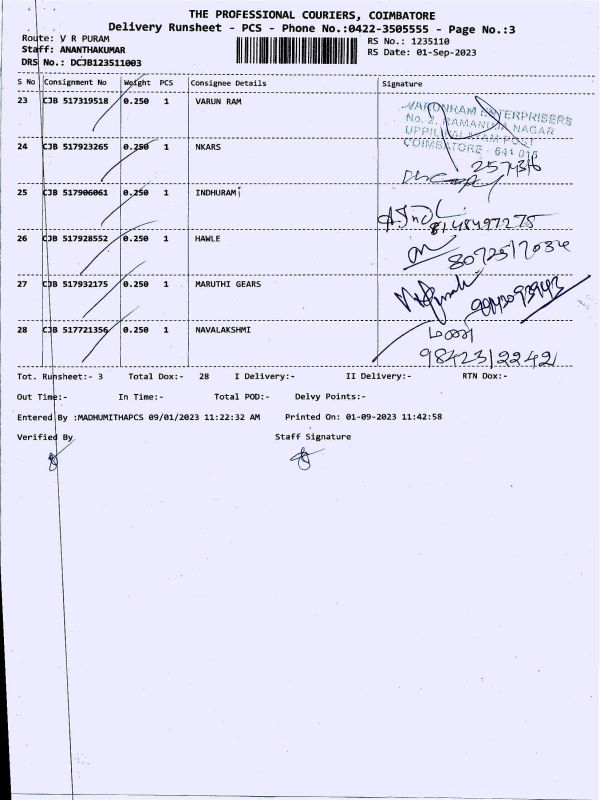 THE PROFESSIONAL COURIERS, COIMBATORE
Delivery Runsheet - PCS - Phone No.:0422-3505555 - Page No.:3
Route: V R PURAM
RS No.: 1235110
Staff: ANANTHAKUMAR
RS Date: 01-Sep-2023
DRS No.: DCJB123511003
S No Consignment No Weight PCS Consignee Details Signature
23 CJB 517319518 0.250 1 VARUN RAM
VARDHRAM ENTERPRISERS
No. 2. RAMANUJA NAGAR
UPPILIPALAYAM POST
COIMBATORE - 641 015
24 CJB 517923265 0.250 1 NKARS
257436
25 CJB 517906061 0.250 1 INDHURAMi
8148497275
26 CJB 517928552 0.250 1 HAWLE
8072517034
27 CJB 517932175 0.250 1 MARUTHI GEARS
28 CJB 517721356 0.250 1 NAVALAKSHMI
9842312242
Tot. Runsheet:- 3 Total Dox:- 28 I Delivery:- II Delivery:- RTN Dox:-
Out Time:- In Time:- Total POD:- Delvy Points:-
Entered By :MADHUMITHAPCS 09/01/2023 11:22:32 AM Printed On: 01-09-2023 11:42:58
Verified By Staff Signature